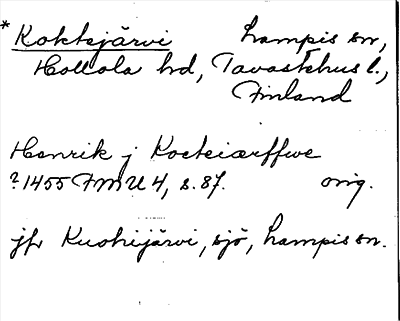 *Koktsjärvi Lampis sn,
Hollola hd, Tavastehus l.,
Finland
Henrik j Kocteiærffwe
? 1455 FMU 4, s. 87. orig.
jfr Kuohijärvi, sjö, Lampis sn.